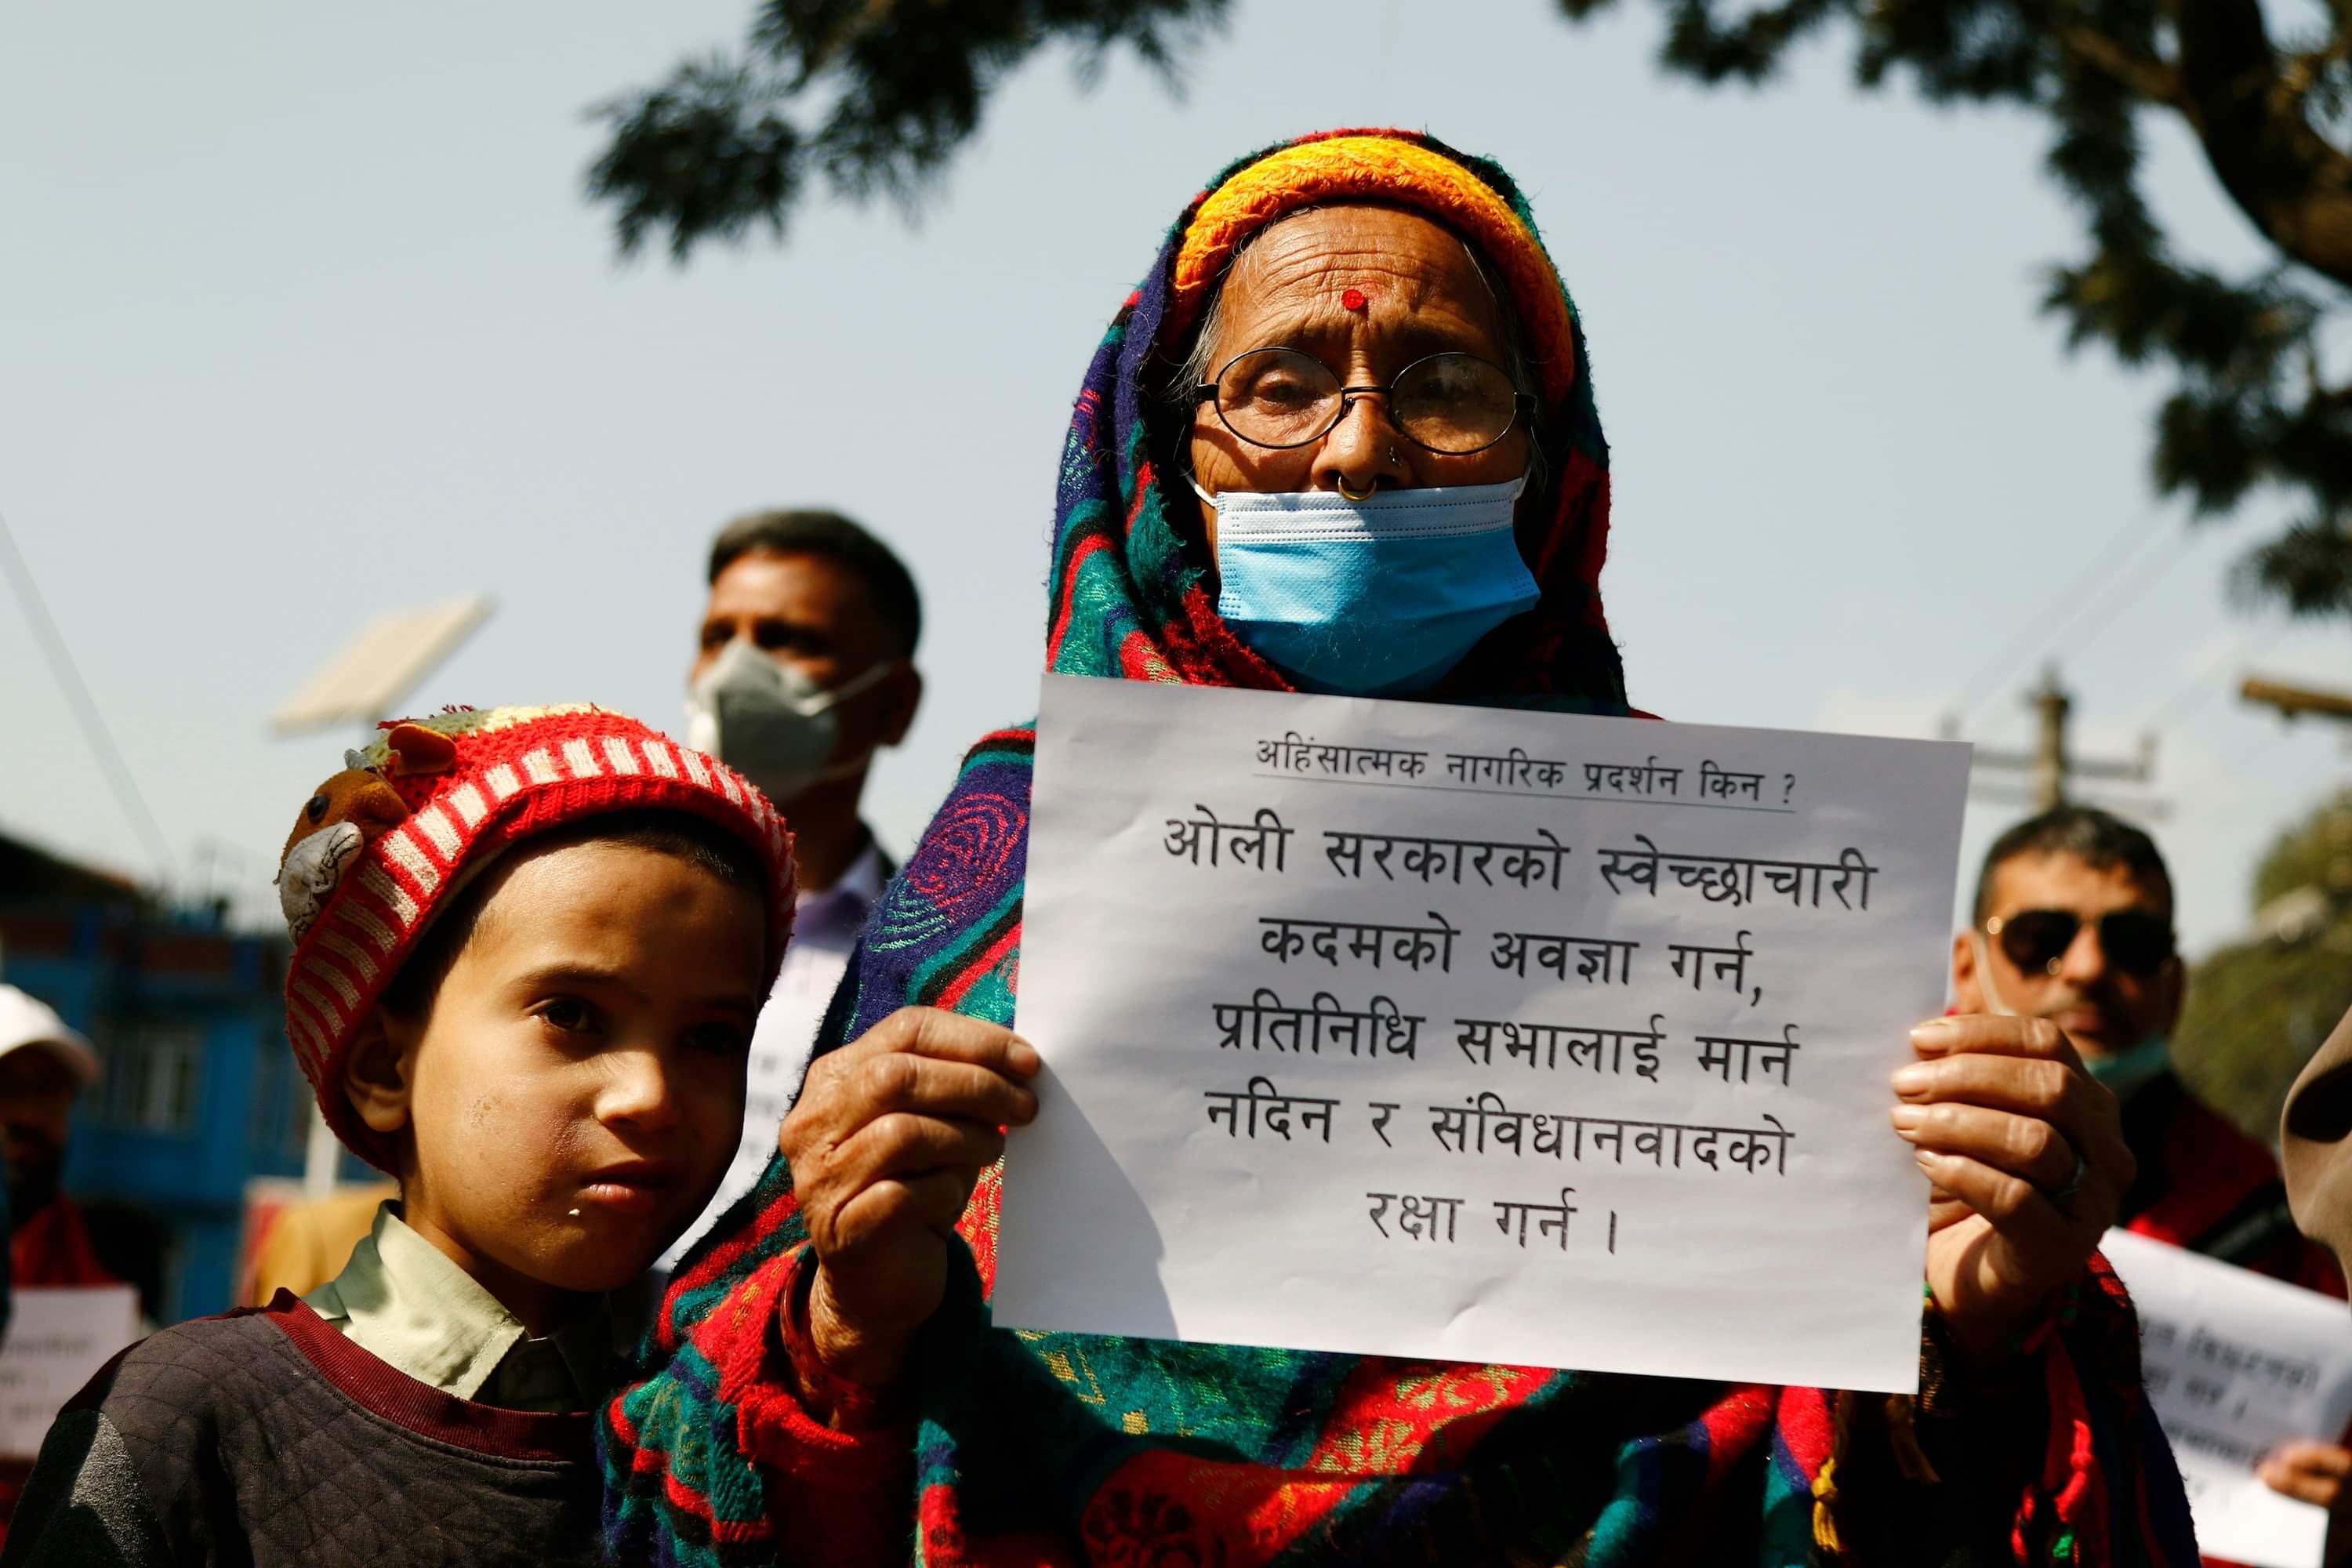 अहिंसात्मक नागरिक प्रदर्शन किन ?
ओली सरकारको स्वेच्छाचारी
कदमको अवज्ञा गर्न,
प्रतिनिधि सभालाई मार्न
नदिन र संविधानवादको
रक्षा गर्न ।